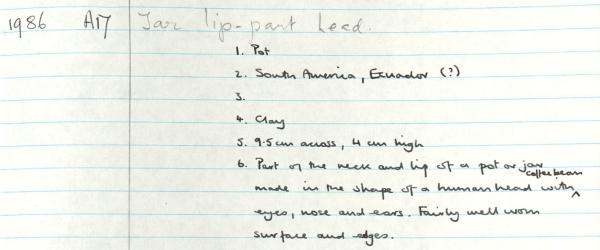 1986 A17 Jar lip-part head.
1. Pot
2. South America, Ecuador (?)
3.
4. Clay
5. 9.5cm across, 4 cm high
6. Part of the neck and lip of a pot or jar
made in the shape of a human head with coffee bean
eyes, nose and ears. Fairly well worn
surface and edges.